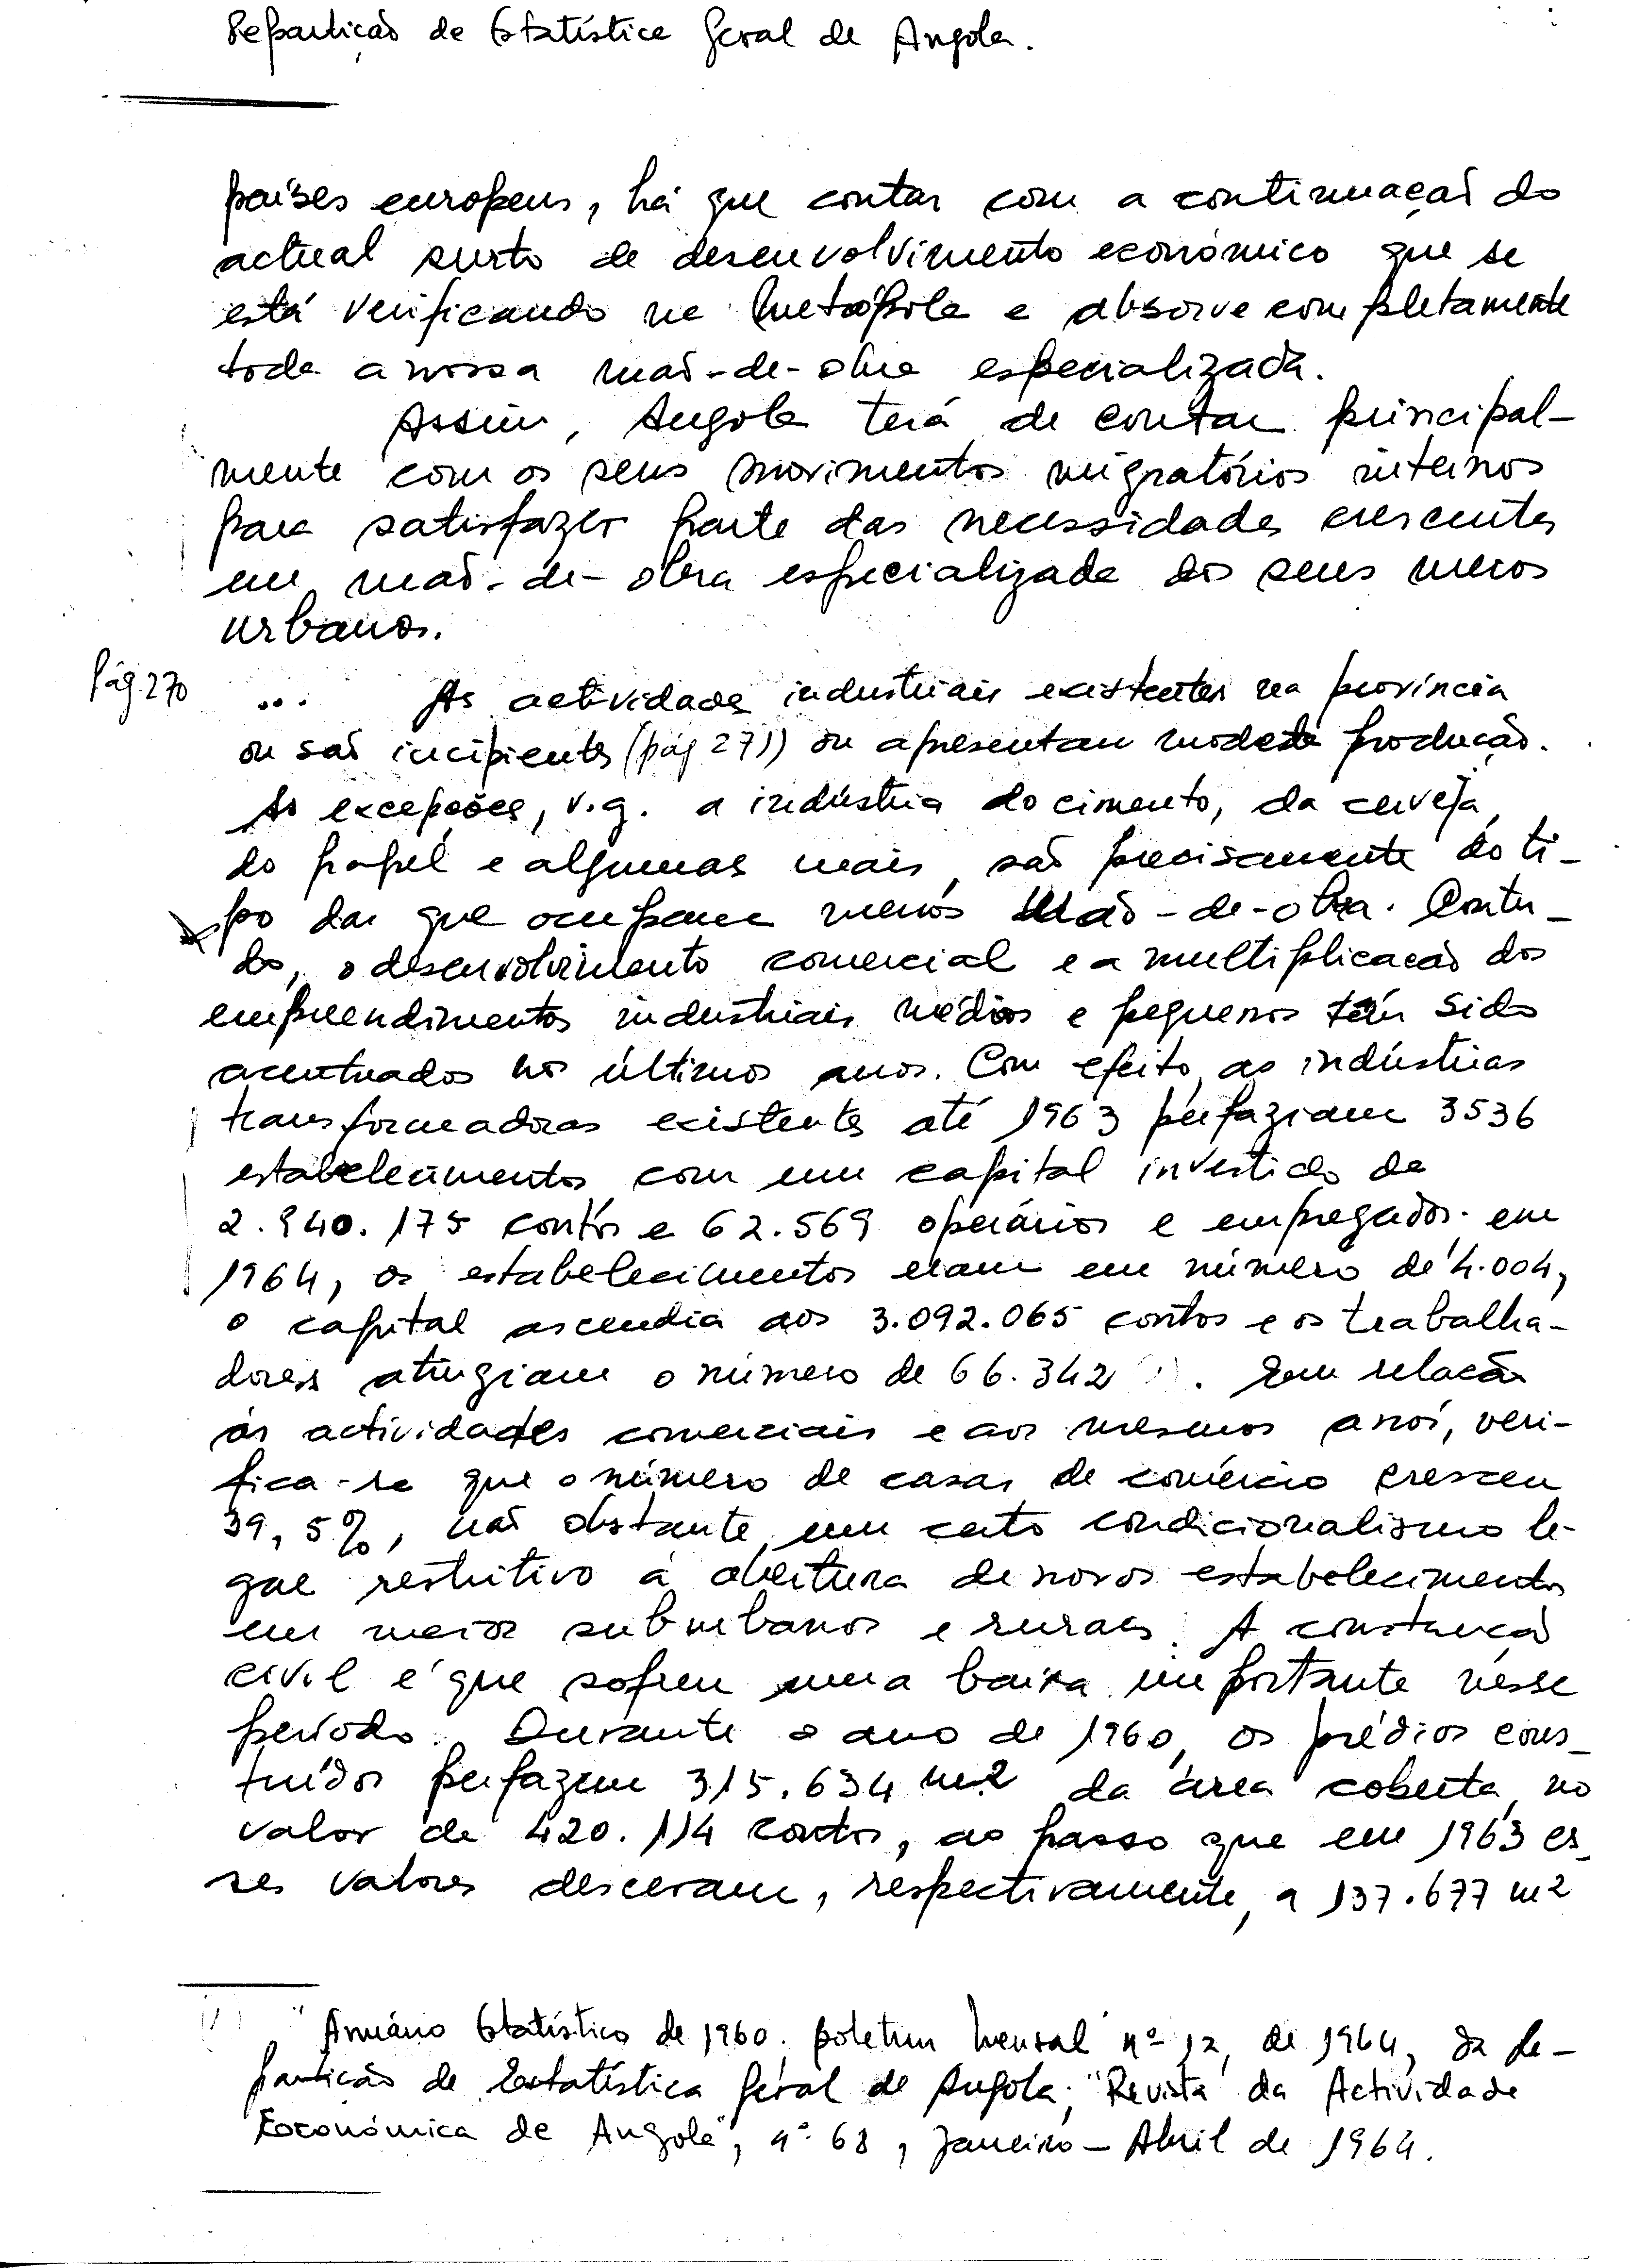 Repartição de Estatística Geral de Angola.
países europeus, há que contar com a continuação do
actual surto de desenvolvimento económico que se
está verificando na Metrópole e absorve completamente
toda a nossa mão-de-obra especializada.
Assim, Angola terá de contar principal-
mente com os seus movimentos migratórios internos
para satisfazer parte das necessidades crescentes
em mão-de-obra especializada dos seus meios
urbanos.
Pág. 270 ... As actividades industriais existentes na província
ou são incipientes (pág 271) ou apresentam modesta produção.
As excepções, v.g. a indústria do cimento, da cerveja,
do papel e algumas mais, são precisamente do ti-
po das que ocupam menos mão-de-obra. Contu-
do, o desenvolvimento comercial e a multiplicação dos
empreendimentos industriais médios e pequenos têm sido
acentuados nos últimos anos. Com efeito, as indústrias
transformadoras existentes até 1963 perfaziam 3536
estabelecimentos, com um capital investido de
2.940.175 contos e 62.569 operários e empregados. em
1964, os estabelecimentos eram em número de 4.004,
o capital ascendia aos 3.092.065 contos e os trabalha-
dores atingiam o número de 66.342 (1). Em relação
às actividades comerciais e aos mesmos anos, veri-
fica-se que o número de casas de comércio cresceu
39,5%, não obstante, um certo condicionalismo le-
gal restritivo à abertura de novos estabelecimentos
em meios suburbanos e rurais. A construção
civil é que sofreu uma baixa importante nesse
período. Durante o ano de 1960, os prédios cons-
truídos perfazem 315.634 m2 da área coberta, no
valor de 420.114 contos, ao passo que em 1963 es-
ses valores desceram, respectivamente, a 137.677 m2
(1) "Anuário Estatístico de 1960. Boletim Mensal nº 12, de 1964, da Re-
partição de Estatística Geral de Angola; "Revista da Actividade
Económica de Angola", nº 68, Janeiro - Abril de 1964.